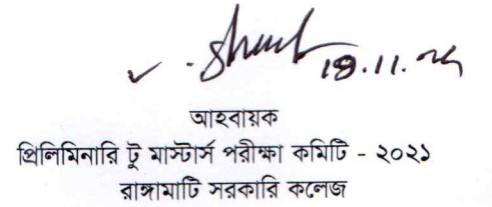 আহবায়ক
প্রিলিমিনারি টু মাস্টার্স পরীক্ষা কমিটি - ২০২১
রাঙ্গামাটি সরকারি কলেজ